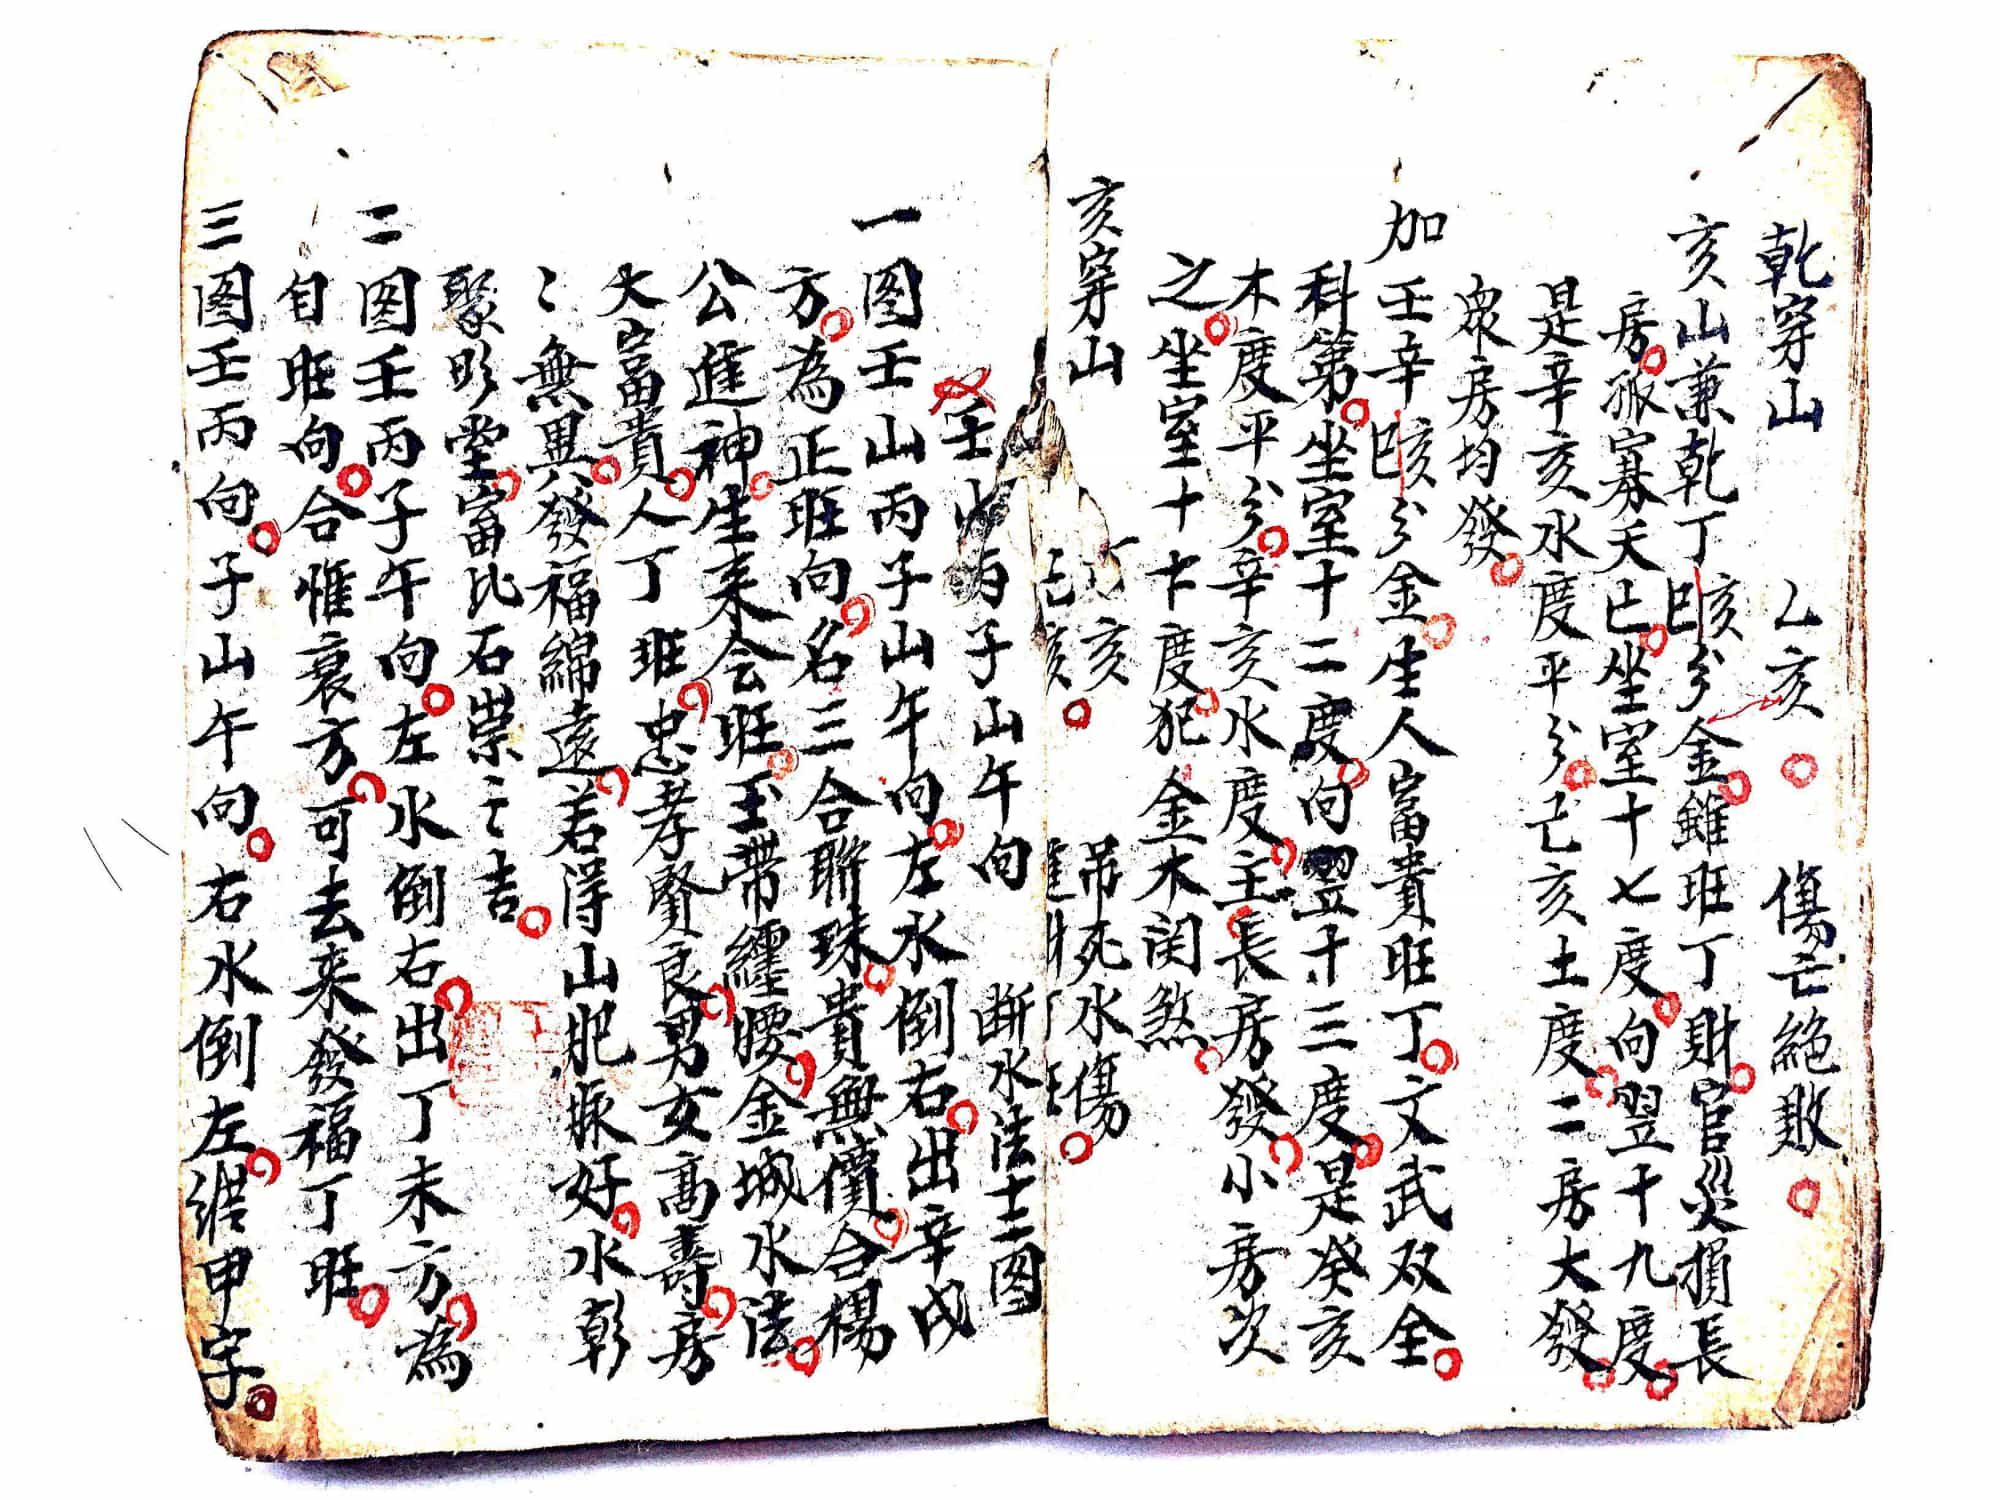 乾穿山 乙亥 傷亡絕敗
亥山兼乾丁巳亥分金雖旺丁財官災損長
房孤寡夭亡坐室十七度向翌十九度
是辛亥水度平分己亥土度二房大發
眾房均發
加壬辛巳亥分金生人富貴旺丁文武双全
科第坐室十二度向翌十三度是癸亥
木度平分辛亥水度主長房發小房次
之坐室十七度犯金木関煞
亥穿山 亥 吊死水傷
壬山丙子山午向 断水法士图
一图壬山丙子山午向左水倒右出辛戌
方為正旺向名三合聯珠貴無價合楊
公進神生来会旺玉帶纒腰金城水法
大富貴人丁旺忠孝賢良男女高壽房
〻無異發福綿遠若淂山肥脉好水彰
聚明堂富比石崇之吉
二图壬丙子午向左水倒右出丁未方為
自旺向合惟衰方可去来發福丁旺
三图壬丙向子山午向右水倒左甲字